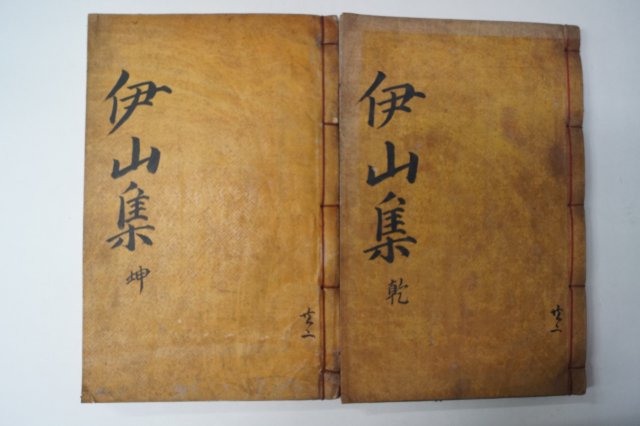 伊山集
乾
共二
伊山集
坤
共二